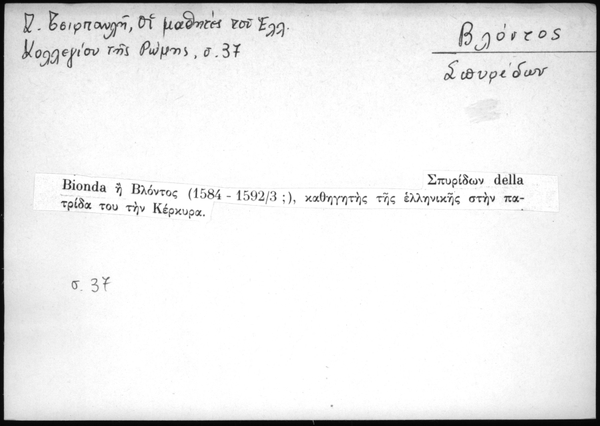 Ζ. Τσιρπανλῆ, Οἱ μαθητές τοῦ Ἑλλ.
Κολλεγίου τῆς Ρώμης, σ. 37
Βλόντος
Σπυρίδων
Σπυρίδων della
Bionda ἤ Βλόντος (1584 - 1592/3 ;), καθηγητὴς τῆς ἑλληνικῆς στὴν πα-
τρίδα του τὴν Κέρκυρα.
σ. 37